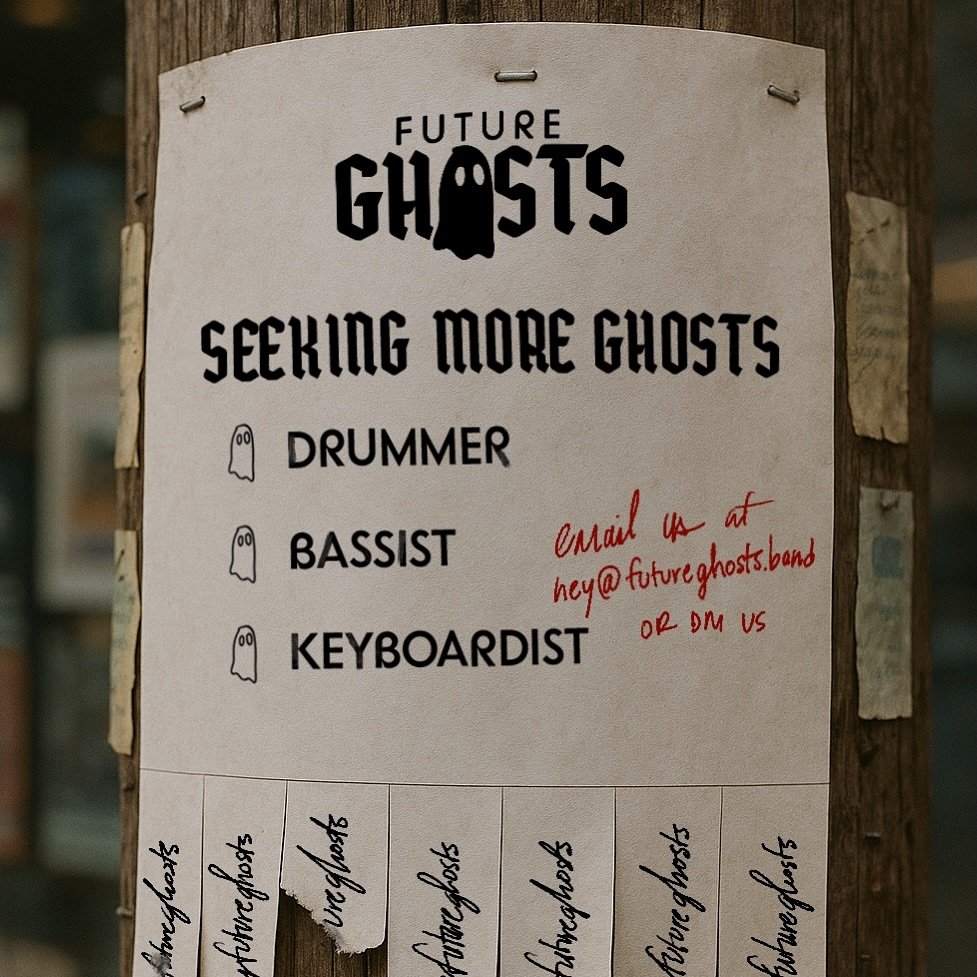 FUTURE
GHOSTS
SEEKING MORE GHOSTS
DRUMMER
BASSIST
KEYBOARDIST
email us at
hey@futureghosts.band
OR DM US
futureghosts
futureghosts
ureghosts
futureghosts
futureghosts
futureghosts
futureghosts